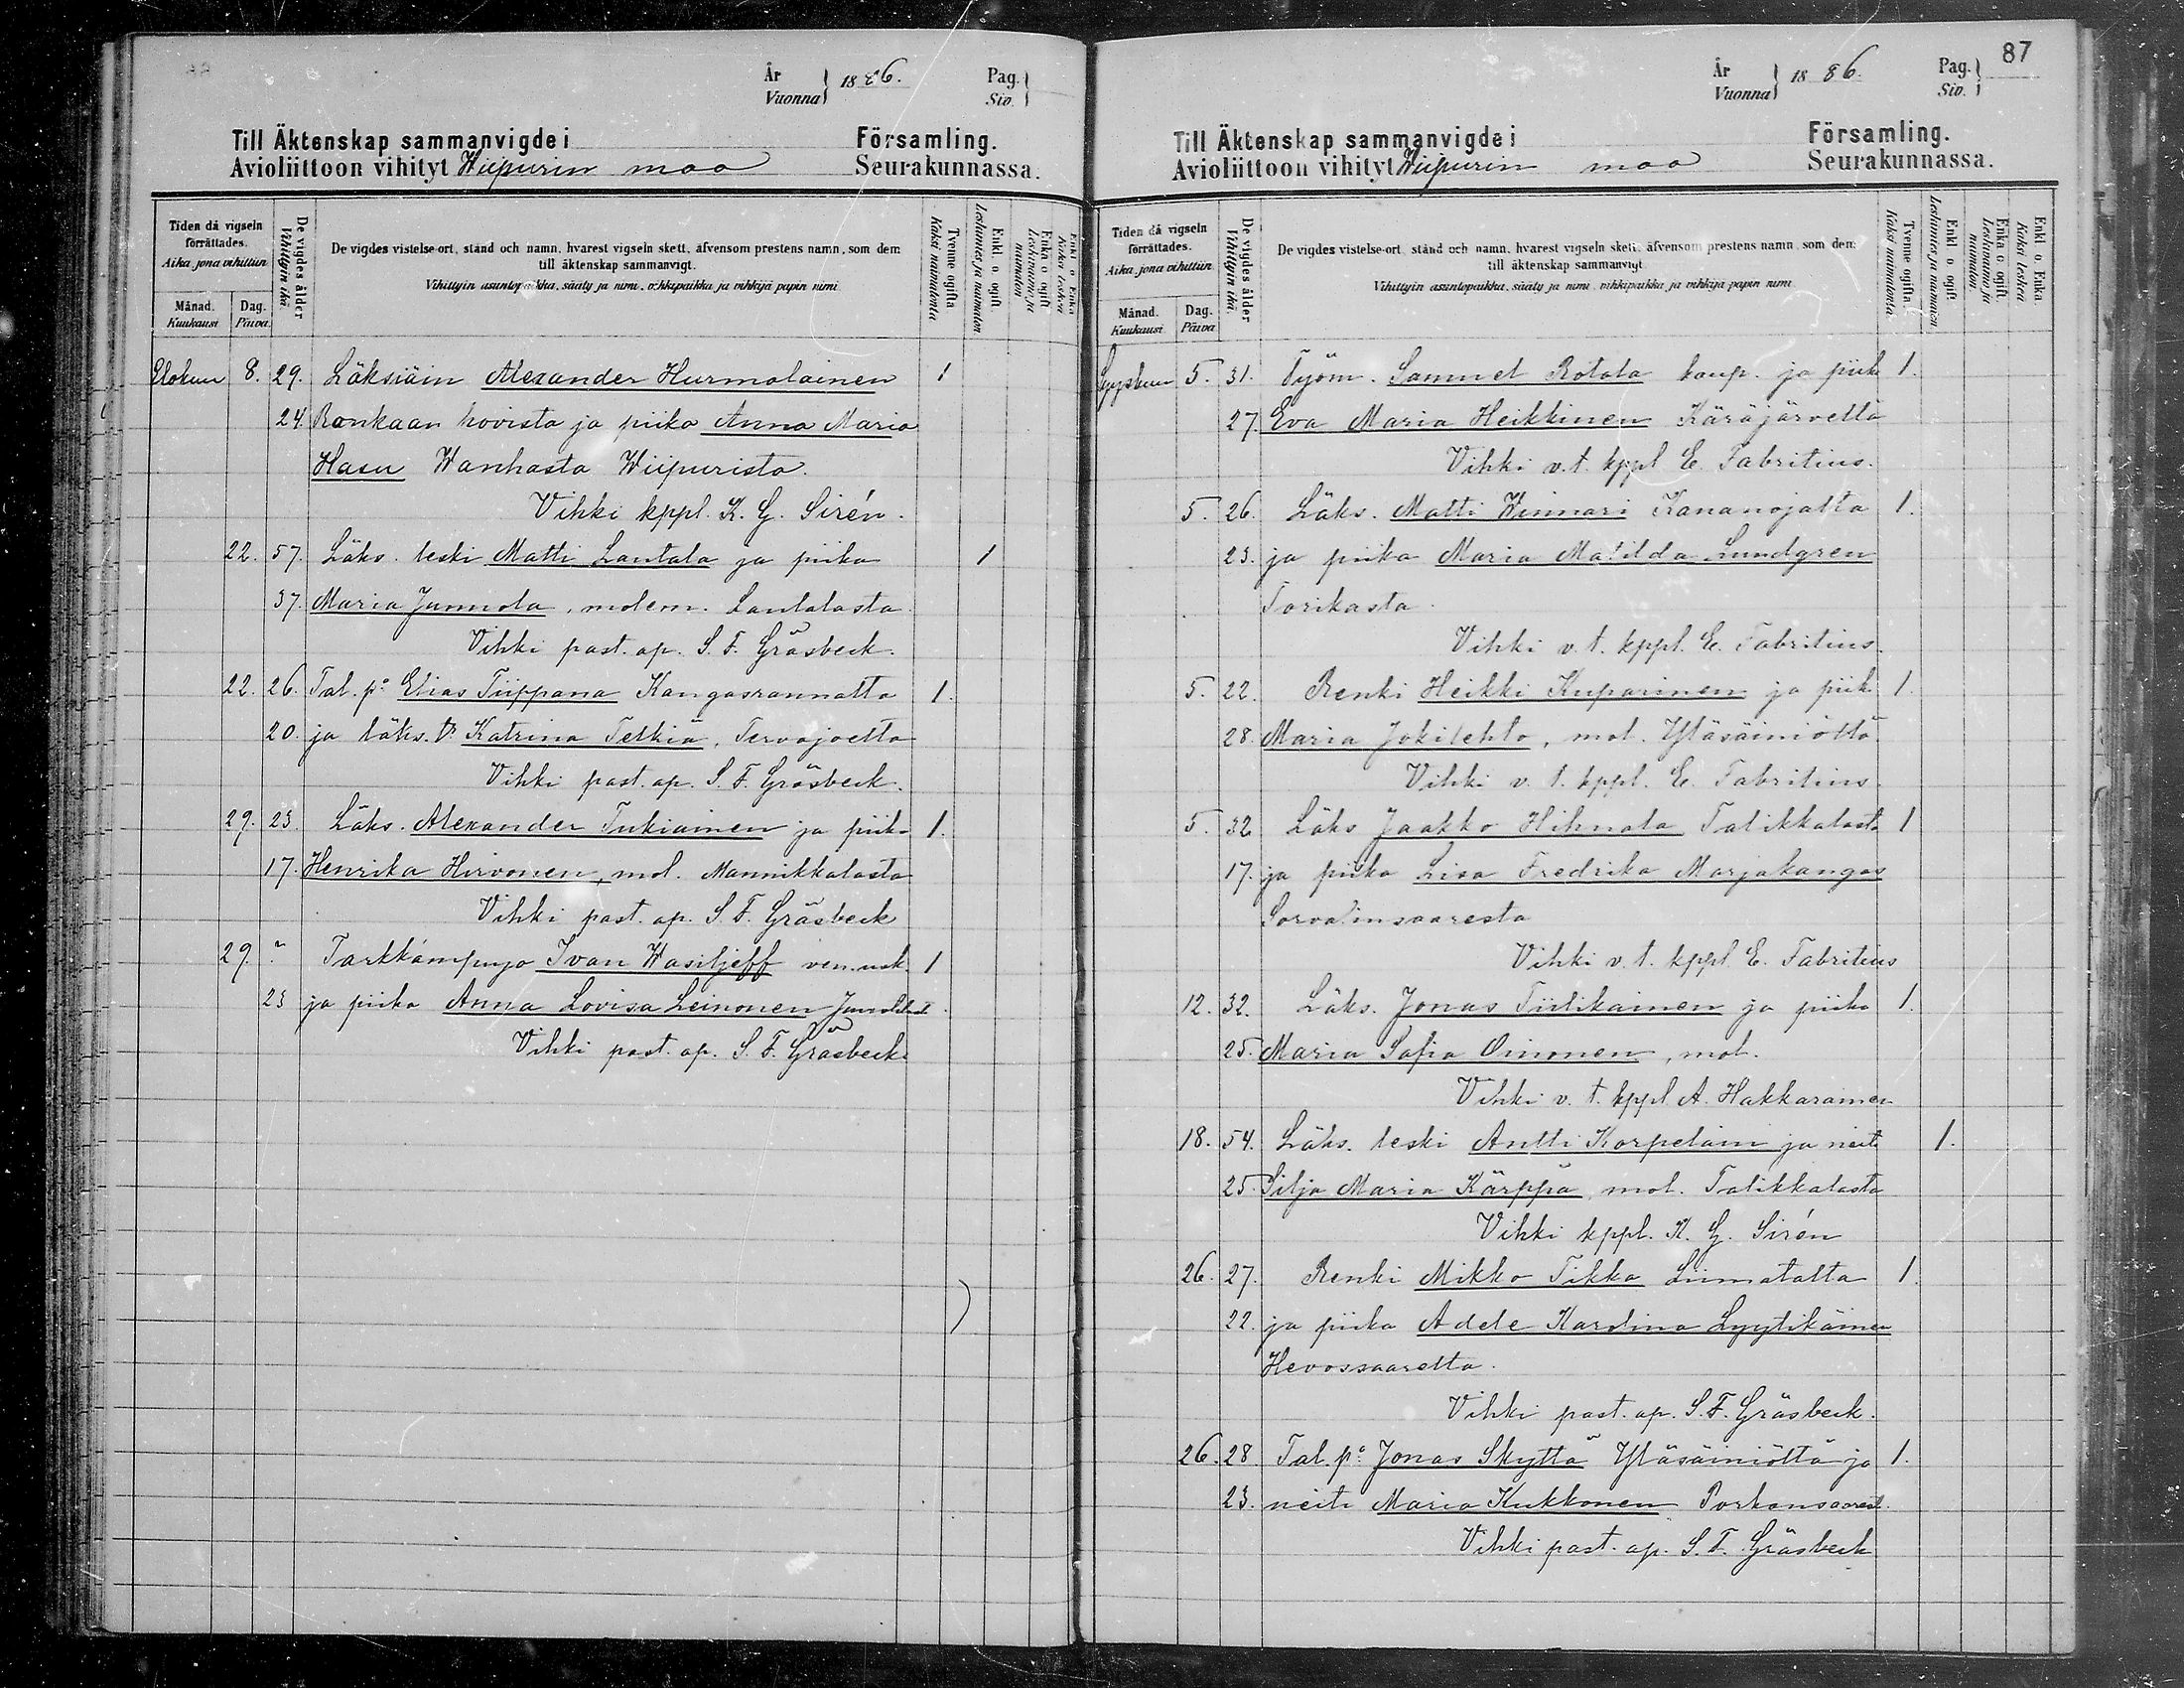 År
Vuonna } 1886.
Pag.
Siv. }
Till Äktenskap sammanvigde i Församling.
Avioliittoon vihityt Wiipurin maa Seurakunnassa.
Tiden då vigseln förrättades.
Aika, jona vihittiin
Månad. Dag.
Kuukausi Päivä.
De vigdes ålder
Vihittyin ikä.
De vigdes vistelse-ort, stånd och namn, hvarest vigseln skett, äfvensom prestens namn, som dem
till äktenskap sammanvigt.
Vihittyin asuntopaikka, sääty ja nimi, vihkipaikka ja vihkijä papin nimi
Tvenne ogifta
Kaksi naimatonta
Enkl. o. ogift.
Leskimies ja naimaton
Enka o. ogift
Leskivaimo ja naimaton
Enkl. o. Enka
Kaksi leskeä
Elokuu 8. 29. Läksiäin Alexander Hurmalainen 1
24. Ronkaan hovista ja piika Anna Maria
Hasu Wanhasta Wiipurista.
Vihki kppl. K. G. Sirén.
22. 57. Läks. leski Matti Lantala ja piika 1
37. Maria Junnola, molem. Lantalasta.
Vihki past. ap. S. F. Gräsbeck.
22. 26. Tal. p:a Elias Tiippana Kangasrannalta 1.
20. ja läks. tr Katrina Telkiä, Tervajoelta
Vihki past. ap. S. F. Gräsbeck.
29. 23. Läks. Alexander Tukiainen ja piik- 1.
17. Henrika Hirvonen, mol. Mannikkalasta
Vihki past. ap. S. F. Gräsbeck
29. ? Tarkkámpuja Ivan Wasiljeff ven. usk. 1
23 ja piika Anna Lovisa Leinonen
Vihki past. ap. S. F. Gräsbeck.
87
År
Vuonna } 1886.
Pag.
Siv. }
Till Äktenskap sammanvigde i Församling.
Avioliittoon vihityt Wiipurin maa Seurakunnassa.
Tiden då vigseln förrättades.
Aika, jona vihittiin
Månad. Dag.
Kuukausi Päivä
De vigdes ålder
Vihittyin ikä.
De vigdes vistelse-ort, stånd och namn, hvarest vigseln skett, äfvensom prestens namn, som dem
till äktenskap sammanvigt.
Vihittyin asuntopaikka, sääty ja nimi, vihkipaikka ja vihkijä papin nimi
Tvenne ogifta.
Kaksi naimatonta.
Enkl. o. ogift.
Leskimies ja naimaton
Enka o. ogift.
Leskivaimo ja naimaton.
Enkl. o. Enka.
Kaksi leskeä.
Syyskuu 5. 31. Työm. Samuel Rotola kaup. ja piik 1.
27. Eva Maria Heikkinen Käräjärveltä
Vihki v. t. kppl E. Fabritius.
5. 26. Läks. Matti Winnari Kananojalta 1.
23. ja piika Maria Matilda Lundgren
Torikasta.
Vihki v. t. kppl. E. Fabritius.
5. 22. Renki Heikki Kuparinen ja piik. 1.
28. Maria Jokilehto, mol. Yläsäiniöltä.
Vihki v. t. kppl. E. Fabritius.
5. 32 Läks Jaakko Hihnala Talikkalasta 1
17. ja piika Lisa Fredrika Marjakangas
Sorvalinsaaresta
Vihki v. t. kppl E. Fabritius
12. 32. Läks. Jonas Tiilikainen ja piika 1.
25. Maria Sofia Oinonen, mol.
Vihki v. t. kppl A. Hakkarainen
18. 54. Läks. leski Antti Korpelain ja neiti 1.
25. Silja Maria Kärppä mol. Talikkalasta
Vihki kppl. K. G. Sirén
26. 27. Renki Mikko Tikka Liimatalta 1.
22. ja piika Adele Karolina Lyytikäinen
Hevossaarelta.
Vihki past. ap. S. F. Gräsbeck.
26. 28. Tal. p:a Jonas Skyttä Yläsäiniöltä ja 1.
23. neiti Maria Kukkonen Porkansaarest.
Vihki past. ap. S. F. Gräsbeck